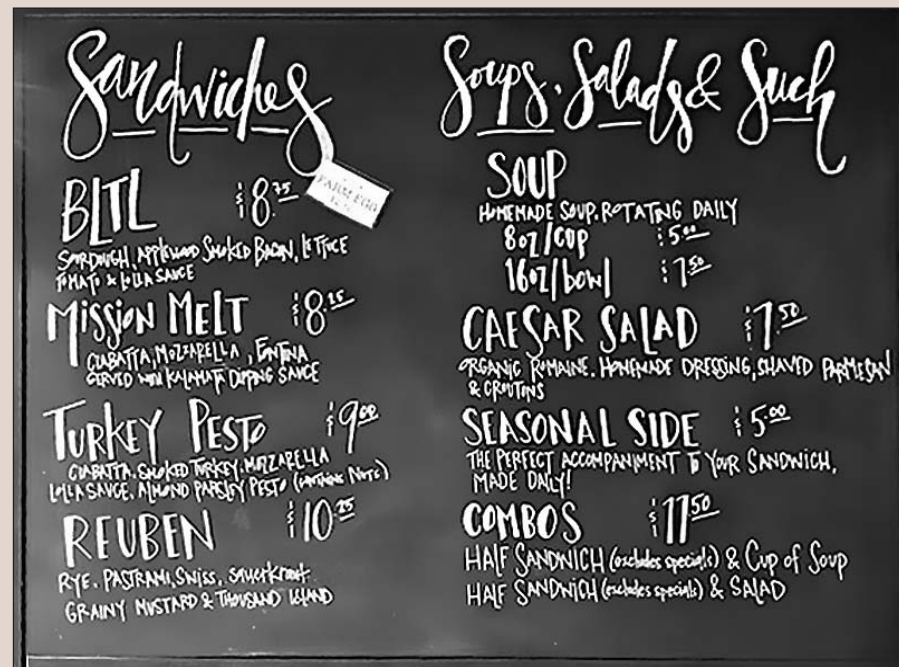 Sandwiches
FARM EGG
BLTL $8.75
SOURDOUGH, APPLEWOOD SMOKED BACON, LETTUCE
TOMATO & LOLLA SAUCE
MISSION MELT $8.25
CIABATTA, MOZZARELLA, FONTINA
SERVED WITH KALAMATA DIPPING SAUCE
TURKEY PESTO $9.00
CIABATTA, SMOKED TURKEY, MOZZARELLA
LOLLA SAUCE, ALMOND PARSLEY PESTO (CONTAINS NUTS)
REUBEN $10.25
RYE, PASTRAMI, SWISS, SAUERKRAUT
GRAINY MUSTARD & THOUSAND ISLAND
Soups, Salads & Such
SOUP
HOMEMADE SOUP, ROTATING DAILY
8oz/CUP $5.00
16oz/bowl $7.50
CAESAR SALAD $7.50
ORGANIC ROMAINE, HOMEMADE DRESSING, SHAVED PARMESAN
& CROUTONS
SEASONAL SIDE $5.00
THE PERFECT ACCOMPANIMENT TO YOUR SANDWICH,
MADE DAILY!
COMBOS $11.50
HALF SANDWICH (excludes specials) & Cup of Soup
HALF SANDWICH (excludes specials) & SALAD